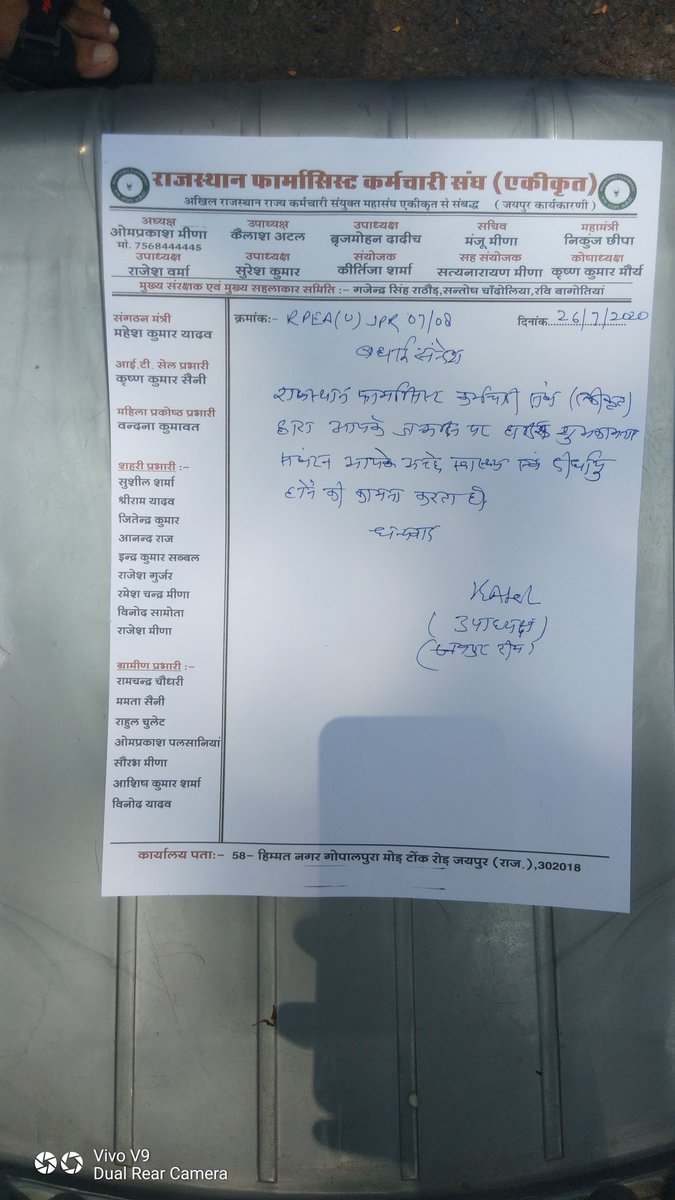 राजस्थान फार्मासिस्ट कर्मचारी संघ (एकीकृत)
अखिल राजस्थान राज्य कर्मचारी संयुक्त महासंघ एकीकृत से संबद्ध (जयपुर कार्यकारिणी)
अध्यक्ष उपाध्यक्ष उपाध्यक्ष सचिव महामंत्री
ओमप्रकाश मीणा कैलाश अटल बृजमोहन दाढीच मंजू मीणा निकुंज छीपा
मो. 7568444445
उपाध्यक्ष उपाध्यक्ष संयोजक सह संयोजक कोषाध्यक्ष
राजेश वर्मा सुरेश कुमार कीर्तिजा शर्मा सत्यनारायण मीणा कृष्ण कुमार मौर्य
मुख्य संरक्षक एवं मुख्य सहलाकार समिति :- गजेन्द्र सिंह राठौड़,सन्तोष चाँदोलिया,रवि बागोतियां
संगठन मंत्री
महेश कुमार यादव
आई.टी. सेल प्रभारी
कृष्ण कुमार सैनी
महिला प्रकोष्ठ प्रभारी
वन्दना कुमावत
शहरी प्रभारी :-
सुशील शर्मा
श्रीराम यादव
जितेन्द्र कुमार
आनन्द राज
इन्द्र कुमार सब्बल
राजेश गुर्जर
रमेश चन्द्र मीणा
विनोद सामोता
राजेश मीणा
ग्रामीण प्रभारी :-
रामचन्द्र चौधरी
ममता सैनी
राहुल चुलेट
ओमप्रकाश पलसानियां
सौरभ मीणा
आशिष कुमार शर्मा
विनोद यादव
क्रमांक:- RPEA(U) JPR 07/08 दिनांक 26/7/2020
बधाई संदेश
राजस्थान फार्मासिस्ट कर्मचारी संघ (एकीकृत)
द्वारा आपके जन्मदिन पर हार्दिक शुभकामना
संगठन आपके अच्छे स्वास्थ्य एवं दीर्घायु
होने की कामना करता है।
धन्यवाद
(उपाध्यक्ष)
(जयपुर टीम)
कार्यालय पता:- 58- हिम्मत नगर गोपालपुरा मोड़ टोंक रोड़ जयपुर (राज.),302018
Vivo V9
Dual Rear Camera